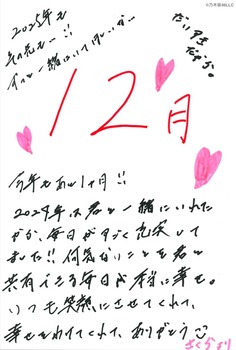 ©乃木坂46LLC
2025年も
その先も…!!
ずっと一緒にいてほしいが…
だいすき
だから。
12月
今年もあと1ヶ月!!
2024年は君と一緒にいれた
から、毎日がすごく充実して
ました!! 何気ないことを君と
共有できる毎日が本当に幸せ。
いつも笑顔にさせてくれて、
幸せをわけてくれて、ありがとう
さくらより